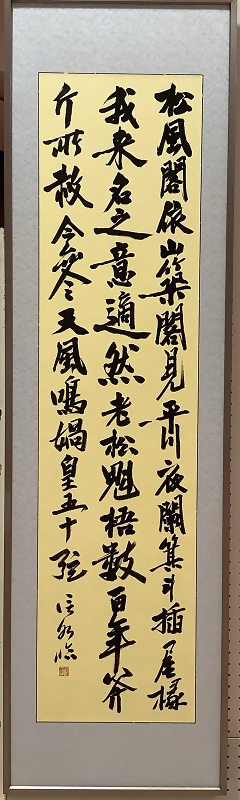 松風閣依山築閣見平川夜闌箕斗插屋椽
我来名之意適然老松魁梧數百年斧
斤所赦今參天風鳴媧皇五十弦
臨